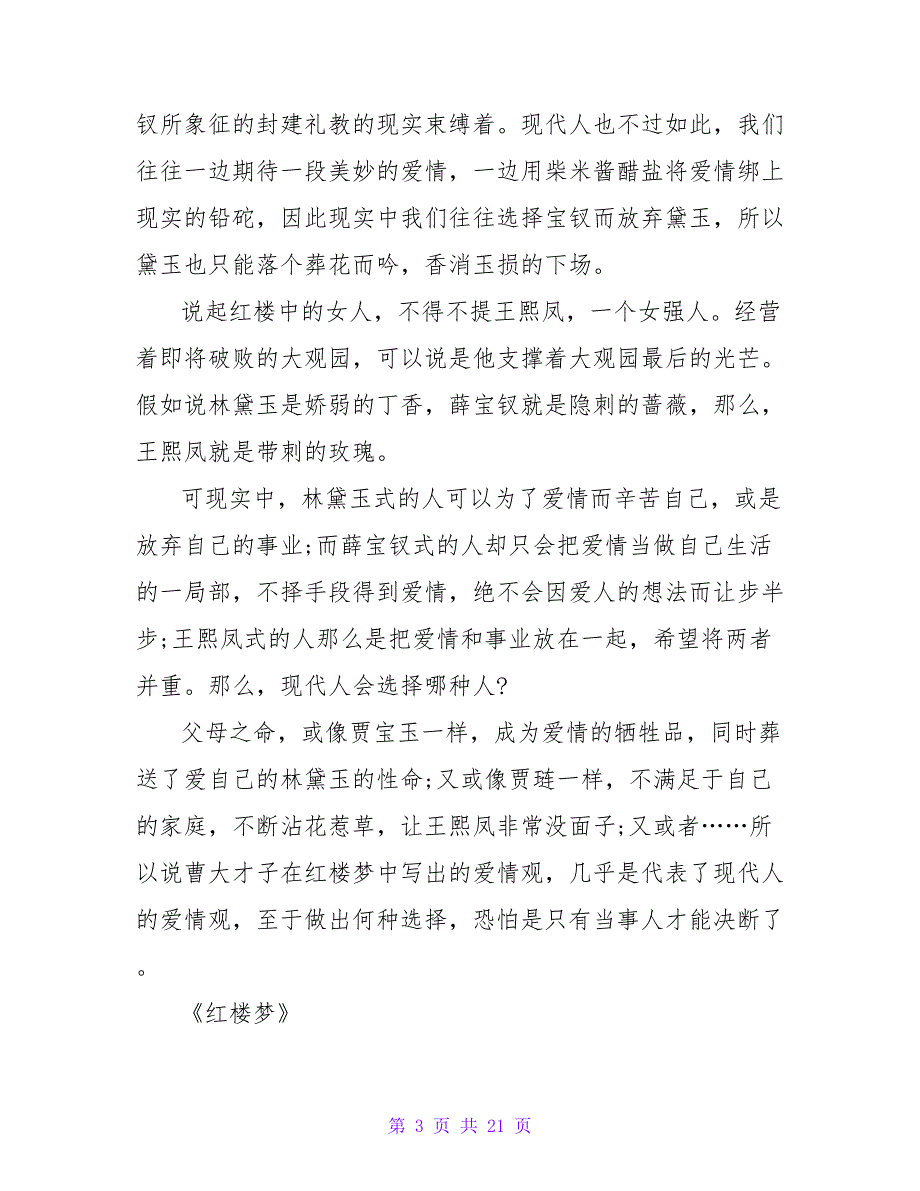 钗所象征的封建礼教的现实束缚着。现代人也不过如此，我们
往往一边期待一段美妙的爱情，一边用柴米酱醋盐将爱情绑上
现实的铅砣，因此现实中我们往往选择宝钗而放弃黛玉，所以
黛玉也只能落个葬花而吟，香消玉损的下场。
说起红楼中的女人，不得不提王熙凤，一个女强人。经营
着即将破败的大观园，可以说是他支撑着大观园最后的光芒。
假如说林黛玉是娇弱的丁香，薛宝钗就是隐刺的蔷薇，那么，
王熙凤就是带刺的玫瑰。
可现实中，林黛玉式的人可以为了爱情而辛苦自己，或是
放弃自己的事业;而薛宝钗式的人却只会把爱情当做自己生活
的一局部，不择手段得到爱情，绝不会因爱人的想法而让步半
步;王熙凤式的人那么是把爱情和事业放在一起，希望将两者
并重。那么，现代人会选择哪种人?
父母之命，或像贾宝玉一样，成为爱情的牺牲品，同时葬
送了爱自己的林黛玉的性命;又或像贾琏一样，不满足于自己
的家庭，不断沾花惹草，让王熙凤非常没面子;又或者……所
以说曹大才子在红楼梦中写出的爱情观，几乎是代表了现代人
的爱情观，至于做出何种选择，恐怕是只有当事人才能决断了
。
《红楼梦》
第 3 页 共 21 页